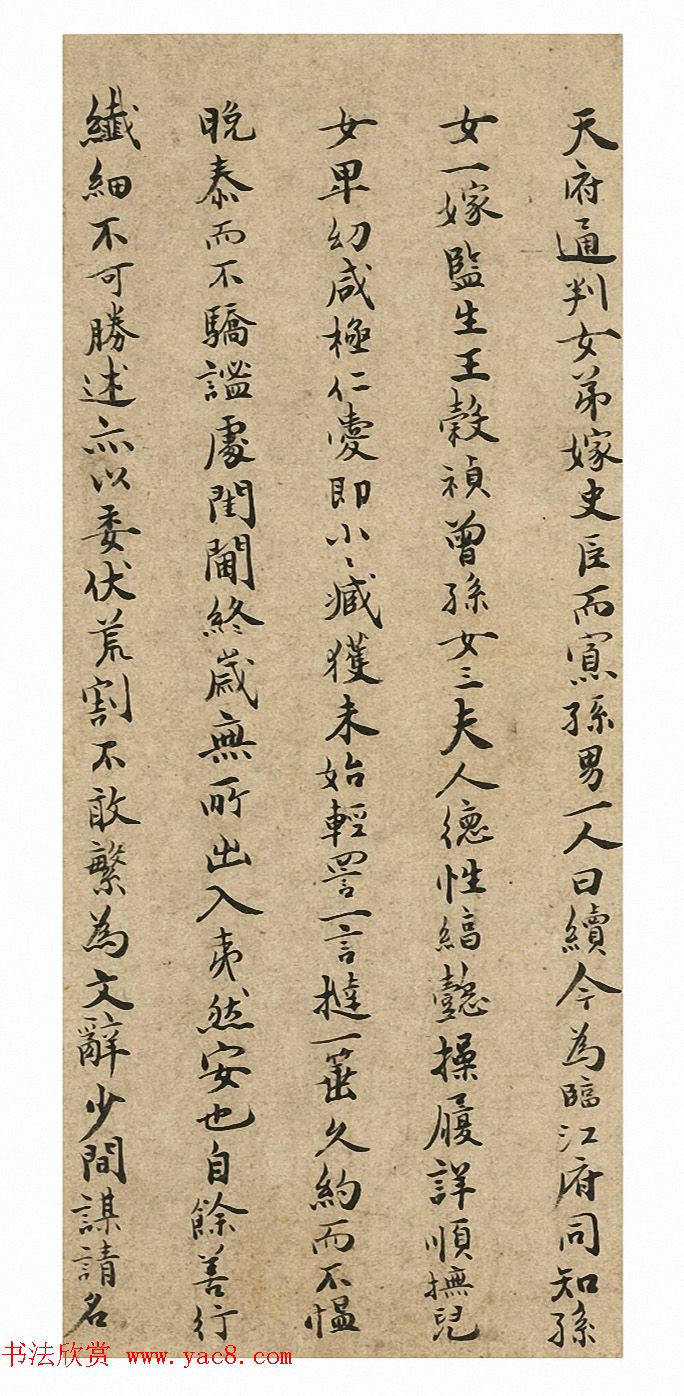 天府通判女弟嫁史臣而寡孫男一人曰續今為臨江府同知孫
女一嫁監生王穀禎曾孫女三夫人德性縞懿操履詳順撫兒
女卑幼咸極仁愛即小〻臧獲未始輕詈一言撻一箠久約而不慍
晚泰而不驕謐處閨閫終歲無所出入夷然安也自餘善行
纖細不可勝述亦以委伏荒割不敢繁為文辭少間謀請名
书法欣赏 www.yac8.com